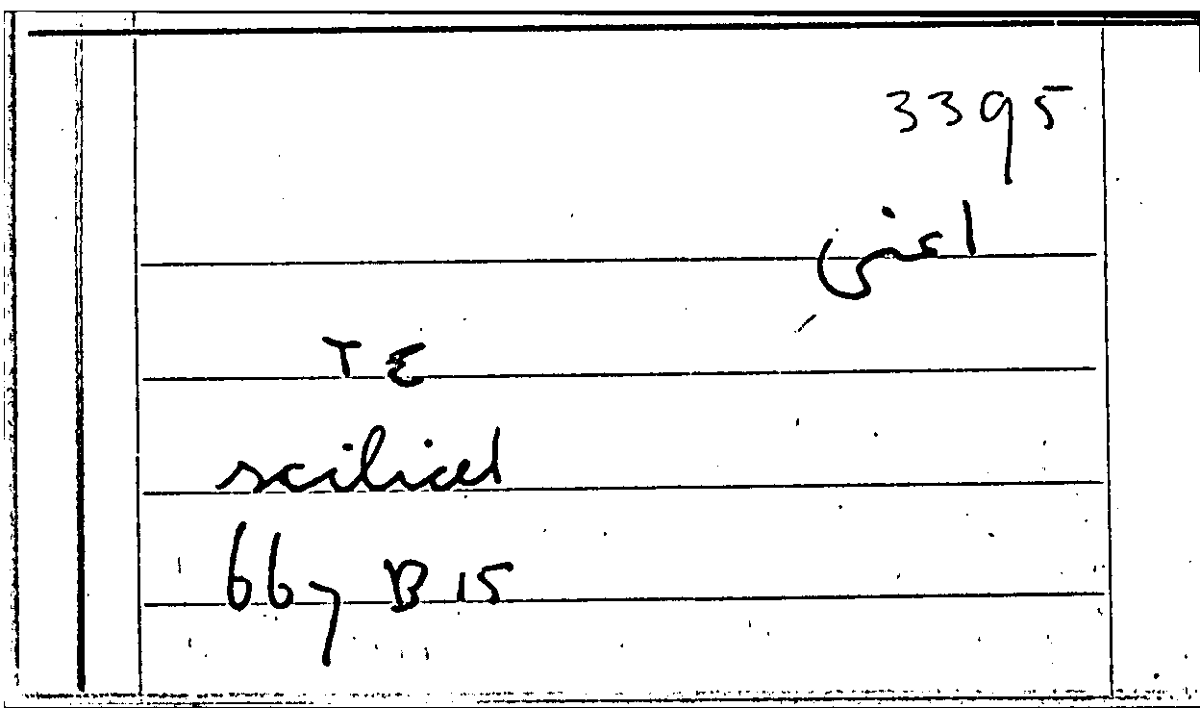 3395
اعنى
τε
scilicet
667 B 15